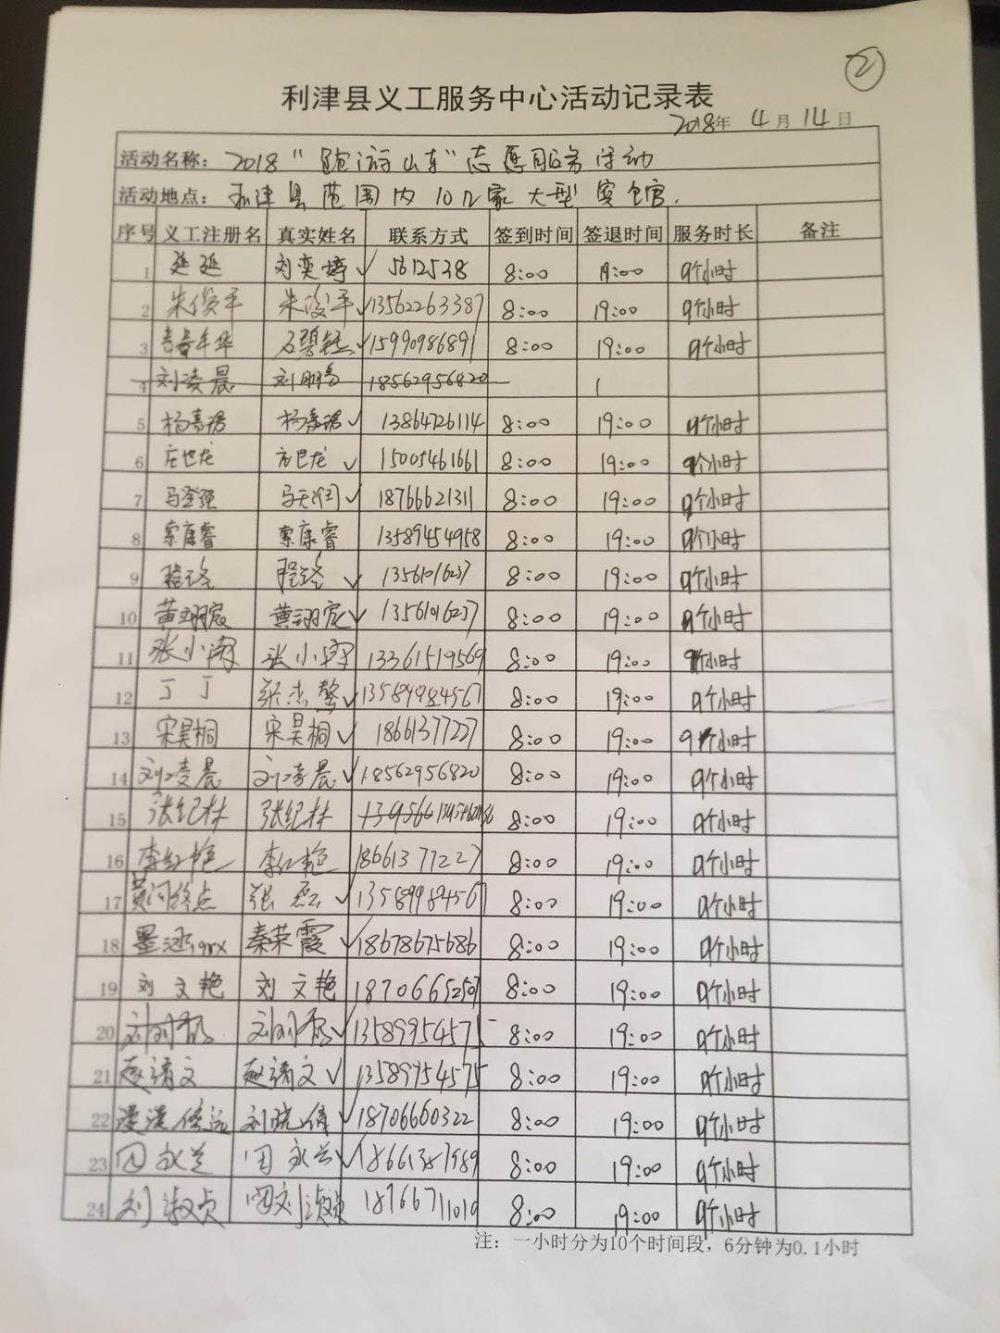 2
利津县义工服务中心活动记录表
2018年 4月 14日
活动名称：2018"跑游山东"志愿服务活动
活动地点：利津县范围内10几家大型宾馆.
序号 义工注册名 真实姓名 联系方式 签到时间 签退时间 服务时长 备注
1 延延 刘奕婷 ✓ 5612538 8:00 19:00 9个小时
2 朱俊平 朱俊平 ✓ 13562263387 8:00 19:00 9个小时
3 青春年华 石碧 ✓ 15990986891 8:00 19:00 9个小时
4 刘凌晨 18562956820
5 ✓ 13864726114 8:00 19:00 9个小时
6 庄世龙 庄世龙 ✓ 15005461661 8:00 19:00 9个小时
7 马登强 马天润 ✓ 18766621311 8:00 19:00 9个小时
8 索康睿 索康睿 13589454958 8:00 19:00 9个小时
9 程珞 程珞 ✓ 8:00 19:00 9个小时
10 黄翊宸 黄翊宸 ✓ 8:00 19:00 9个小时
11 张小 张小 13361519569 8:00 19:00 9个小时
12 丁丁 ✓ 13589984567 8:00 19:00 9个小时
13 宋昊桐 宋昊桐 ✓ 18661377227 8:00 19:00 9个小时
14 刘凌晨 刘凌晨 ✓ 18562956820 8:00 19:00 9个小时
15 张纪林 张纪林 8:00 19:00 9个小时
16 李红艳 李红艳 18661377227 8:00 19:00 9个小时
17 黄河终点 张磊 ✓ 13589984567 8:00 19:00 9个小时
18 秦荣霞 ✓ 18678675686 8:00 19:00 9个小时
19 刘文艳 刘文艳 18706652507 8:00 19:00 9个小时
20 ✓ 13589954575 8:00 19:00 9个小时
21 赵靖文 赵靖文 ✓ 13589954575 8:00 19:00 9个小时
22 刘晓倩 ✓ 18706660322 8:00 19:00 9个小时
23 田永兰 田永兰 ✓ 18661387989 8:00 19:00 9个小时
24 刘淑贞 刘淑贞 18766711019 8:00 19:00 9个小时
注：一小时分为10个时间段，6分钟为0.1小时